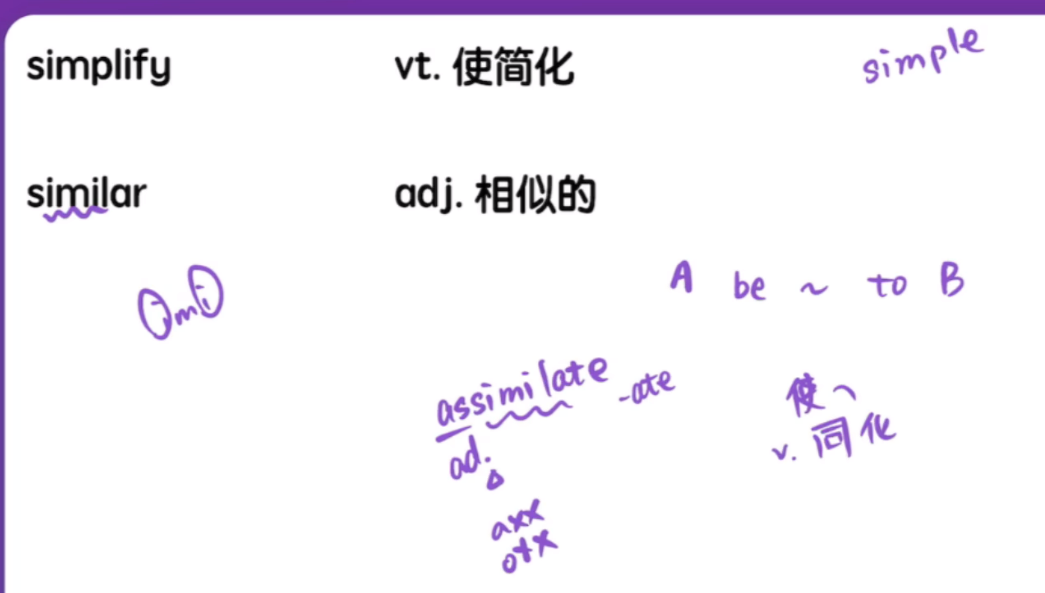 simplify vt. 使简化 simple
similar adj. 相似的
imi
A be ~ to B
assimilate -ate
使
ad.
v. 同化
axx